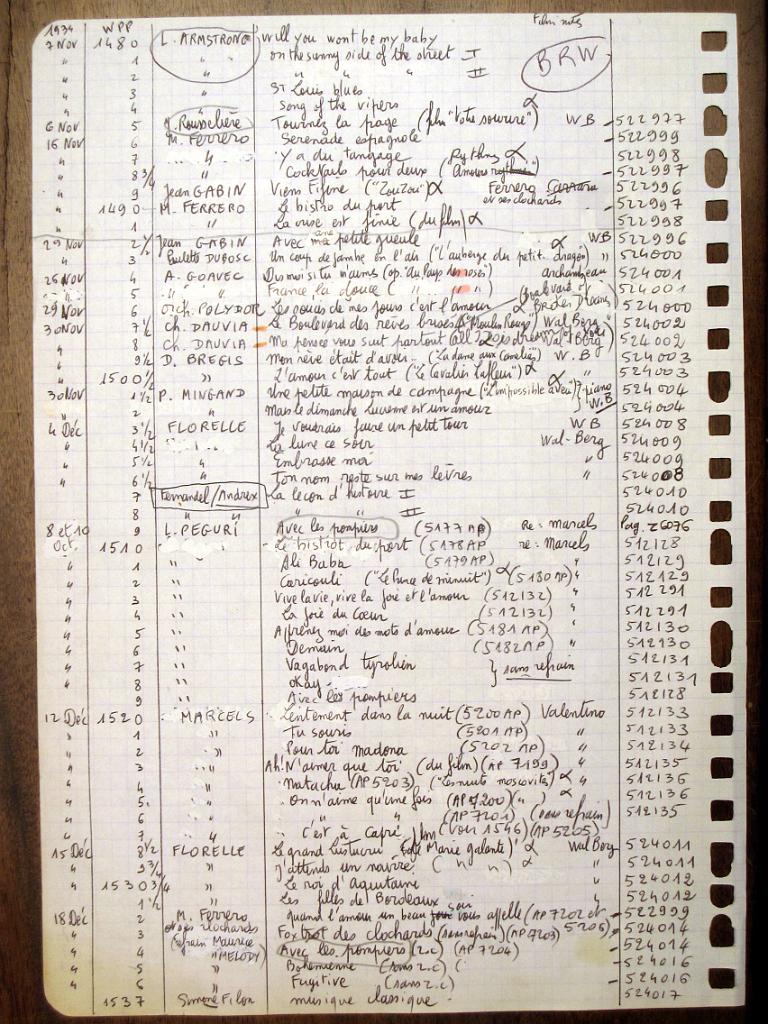 1934 WPP Film nuts
7 Nov 1480 L. ARMSTRONG Will you wont be my baby
" 1 " on the sunny side of the street I
" 2 " " " " II BRW
" 3 St Louis blues
" 4 Song of the vipers
6 Nov 5 Rousselière Tournez la page (film "Votre sourire") WB 522977
16 Nov 6 M. Ferrero Serenade espagnole 522999
" 7 " Y a du tangage 522998
" 8 3/4 Cocktails pour deux ( Rythms 522997
" 9 Jean GABIN Viens Fifine ("Zouzou") Ferrero et ses clochards 522996
" 1490 M. FERRERO Le bistro du port 522997
" 1 " La ruse est finie (du film) 522998
29 Nov 2 1/2 Jean GABIN Avec ma petite gueule WB 522996
" 3 Paulette DUBOSC Un coup de jambe en l'air ("l'auberge du petit dragon) " 524000
26 Nov 4 A. GOAVEC Du moi si tu m'aimes (op. Au pays des roses) archambeau 524001
" 5 " " France la douce ( " " " ) 524001
29 Nov 6 Orch. POLYDOR Les roues de mes jours c'est l'amour 524000
30 Nov 7 1/2 Ch. DAUVIA Le Boulevard des rêves brisés ("Moulin Rouge) Wal Berg 524002
" 8 Ch. DAUVIA Ma pensée vous suit partout Wal Berg) 524002
" 9 1/2 D. BREGIS Mon rêve était d'avoir.. (La dame aux camelias) W.B 524003
" 1500 1/2 " L'amour c'est tout ("Le Cavalier Lafleur") 524003
30 Nov 1 1/2 P. MINGAND Une petite maison de campagne ("L'impossible aveu") piano W.B 524004
" 2 " Mais le dimanche Lucerne est un amour 524004
4 Déc 3 1/2 FLORELLE Je voudrais faire un petit tour WB 524008
" 4 1/2 La lune ce soir Wal-Berg 524009
" 5 1/2 " Embrasse moi 524009
" 6 1/2 " Ton nom reste sur mes lèvres " 524008
7 Fernandel/Andrex La leçon d'histoire I 524010
8 " " " II 524010
8 et 10 9 L. PEGURI Avec les pompiers (5177 AP) Re: Marcels Parg. 26076
Oct. 1510 Le bistrot du port (5178AP) re: Marcels 512128
" 1 " Ali Baba (5179AP) " 512129
" 2 " Caricouli ("Le Prince de minuit") (5180AP) " 512129
" 3 " Vive la vie, vive la joie et l'amour (512132) " 512291
" 4 " La joie du Cœur (512132) " 512291
" 5 " Apprenez moi des mots d'amour (5181AP) " 512130
" 6 " Demain (5182AP " 512930
" 7 " Vagabond tyrolien } sans refrain 512131
" 8 " Okay 512131
9 " Avec les pompiers 512128
12 Déc 1520 MARCELS Lentement dans la nuit (5200AP) Valentino 512133
" 1 " Tu souris (5201AP) " 512133
" 2 " Pour toi madona (5202AP) " 512134
" 3 " Ah! N'aimer que toi (du film) (AP 7199) " 512135
" 4 " Natacha (AP 5203) ("Les nuits moscovites) " 512136
" 5 " On n'aime qu'une fois (AP7200) ( " ) " 512136
" 6 " " (AP7201) (sans refrain) 512135
" 7 " C'est à Capri (Voir 1546) (AP 5205)
15 Déc 8 1/2 FLORELLE Le grand Lustucru (op. Marie galante) Wal Berg 524011
" 9 3/4 " J'attends un navire. ( " " ) " 524011
" 1530 3/4 " Le roi d'Aquitaine " 524012
" 1 1/2 " Les filles de Bordeaux " 524012
18 Déc 2 M. Ferrero quand l'amour un beau soir vous appelle (AP 7202 et 5206) 522999
" 3 et ses clochards Fox trot des clochards (sans refrain) (AP7203) 524014
" 4 (refrain Maurice Avec les pompiers (r.c) (AP 7204) 524014
" 5 MELODY) Bohemienne (sans r.c) ( 524016
" 6 " Fugitive (sans r.c) 524016
1537 Simone Filon musique classique 524017